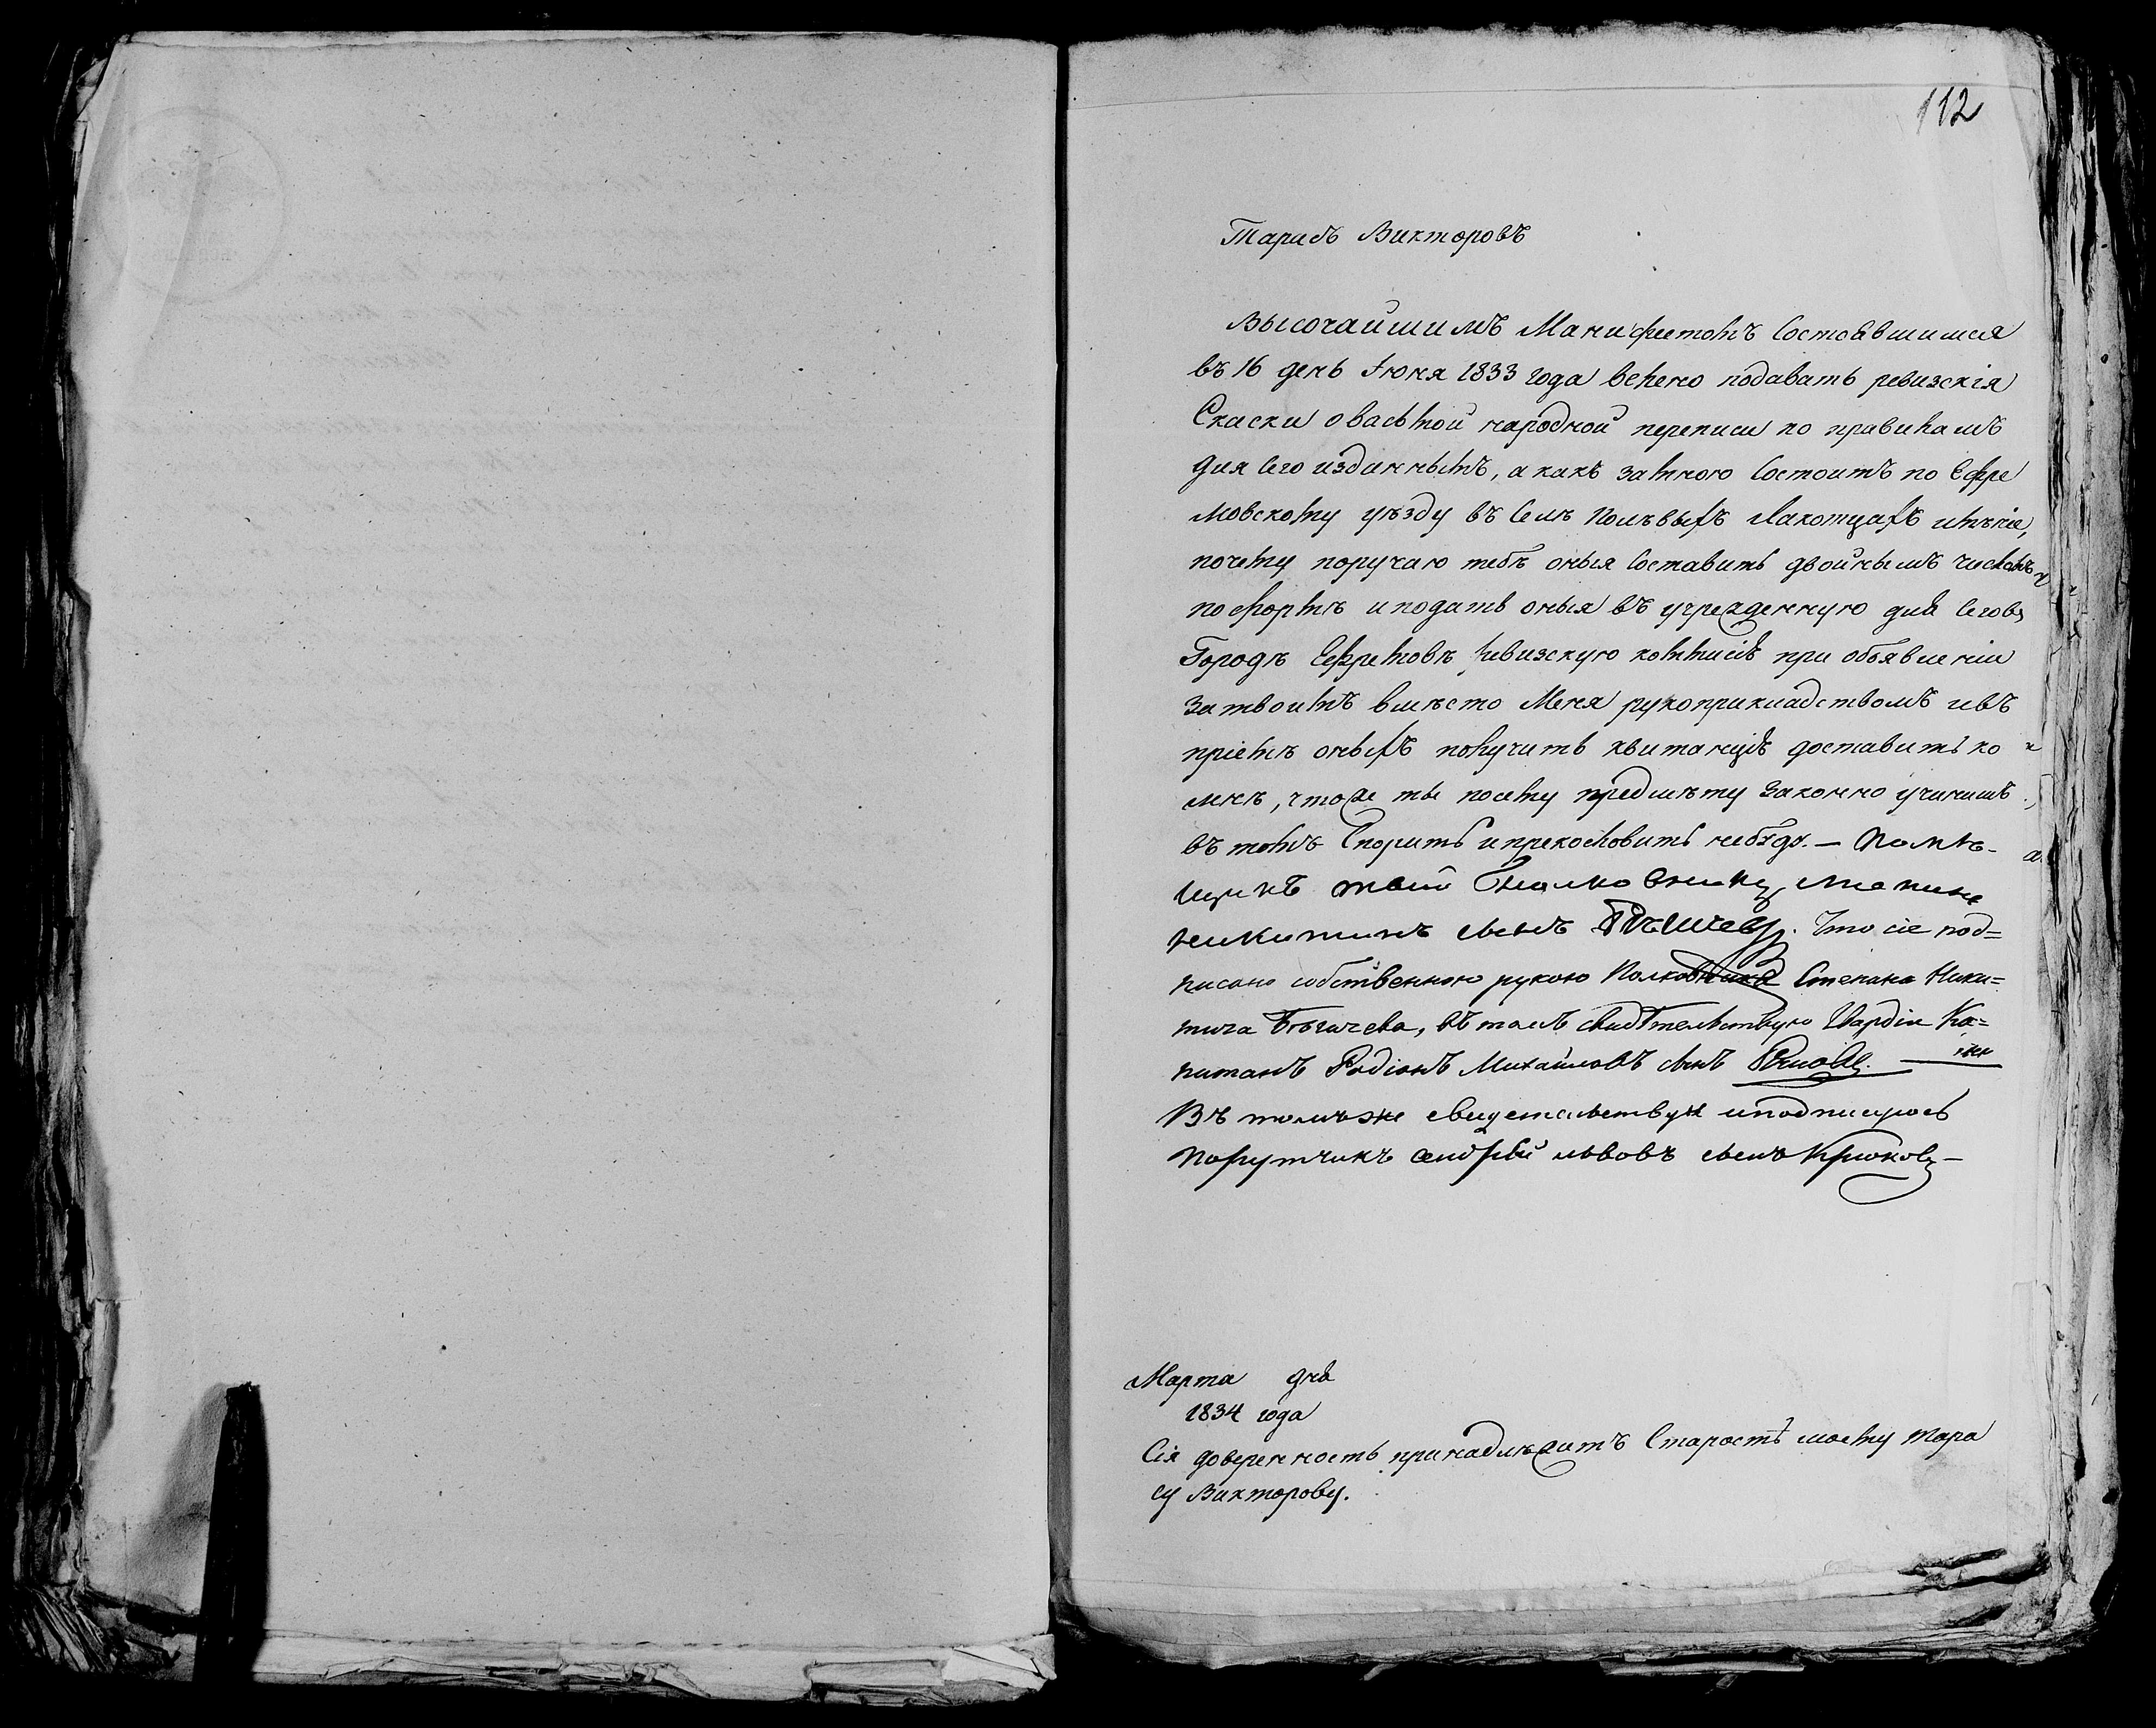 112
Тарасъ Викторовъ
Высочайшимъ Манифестомъ Состоявшимся
въ 16 день Іюня 1833 года велено подавать ревизскія
Скаски о васьмой народной переписи по правиламъ
для сего изданнымъ, а какъ за мною Состоитъ по Ефре
мовскому уѣзду въ Селѣ Полѣвыхъ Лакотцахъ имѣніе,
почему поручаю тебѣ оныя Составить двойнымъ числомъ
по формѣ и подать оныя въ учрежденную для Сего въ
Городѣ Ефремовѣ Ревизскую коммисію при объявленіи
за твоимъ вмѣсто Меня рукоприкладствомъ и въ
пріемѣ оныхъ получить квитанцію доставить ко
мнѣ, что же ты посему предмѣту законно учинишь
въ томъ Спорить и прекословить небуду. — Помѣ-
щикъ твой Полковникъ Степанъ
никитинъ сынъ Бѣгичевъ. Что сіе под=
писано собственною рукою Полковника Степана Ники=
тича Бѣгичева, въ томъ свидѣтельствую Гвардіи Ка=
питанъ Родіонъ Михайловъ сынъ
Въ томъже свидетельствую иподписуюсь
Порутчикъ андрѣй львовъ сынъ Крюковъ —
Марта дня
1834 года
Сія доверенность принадлѣжитъ Старостѣ моему Тара
су Викторову.